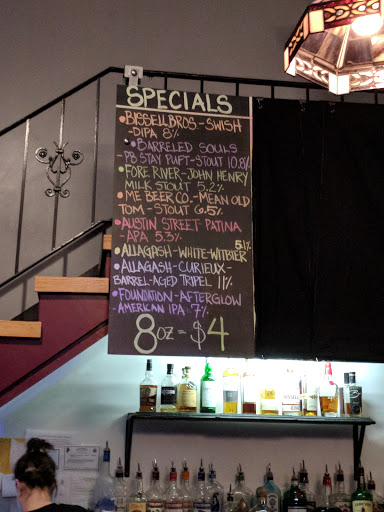 SPECIALS
•BISSELL BROS.-SWISH
-DIPA 8%
•BARRELED SOULS-
PB STAY PUFT-STOUT 10.8%
•FORE RIVER-JOHN HENRY
MILK STOUT 5.2%
•ME BEER CO.-MEAN OLD
TOM-STOUT 6.5%
•AUSTIN STREET-PATINA
-APA 5.3%
•ALLAGASH-WHITE-WITBIER 5.1%
•ALLAGASH-CURIEUX-
BARREL-AGED TRIPEL 11%
•FOUNDATION-AFTERGLOW
-AMERICAN IPA 7%
8oz=$4